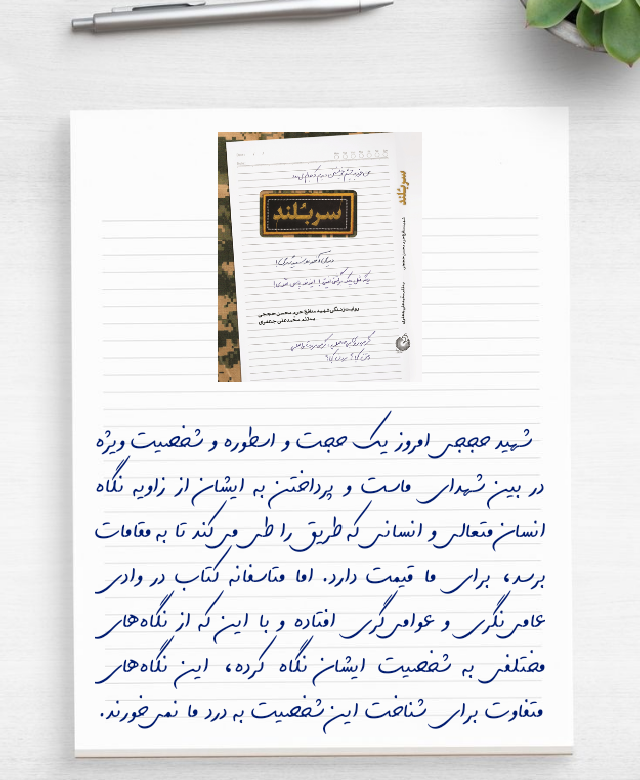 سربلند
سربلند
روایت زندگی شهید مدافع حرم محسن حججی
محمدعلی جعفری
شهید حججی امروز یک حجت و اسطوره و شخصیت ویژه
در بین شهدای ماست و پرداختن به ایشان از زاویه نگاه
انسان متعالی و انسانی که طریق را طی می‌کند تا به مقامات
برسد، برای ما قیمت دارد. اما متاسفانه کتاب در وادی
عامی‌نگری و عوامی‌گری افتاده و با این که از نگاه‌های
مختلفی به شخصیت ایشان نگاه کرده، این نگاه‌های
متفاوت برای شناخت این شخصیت به درد ما نمی‌خورند.